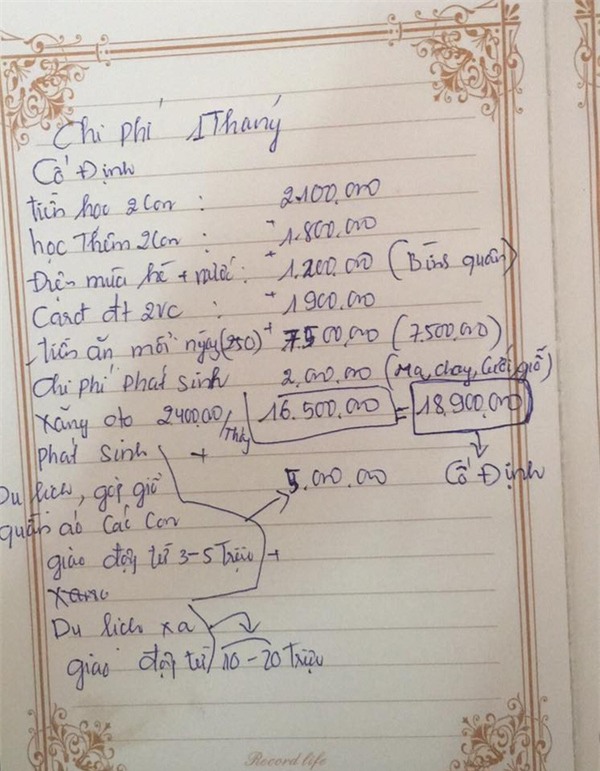 Chi phí 1 Tháng
Cố Định
tiền học 2 con : 2.100.000
học Thêm 2 con : + 1.800.000
Điện mùa hè + nước : + 1.200.000 (Bình quân)
Card đt 2vc : + 1900.000
Tiền ăn mỗi ngày (250) + 7500.000 (7.500.000)
Chi phí phát sinh 2.000.000 (Ma, chay, Cưới, giỗ)
xăng oto 2400.00/Tháy 16.500.000 = 18.900.000
phát sinh + Cố Định
Du lịch, góp giỗ 5.000.000
quần áo Các Con
giao động từ 3-5 Triệu +
Du lịch xa
giao động từ 10-20 triệu
Record life